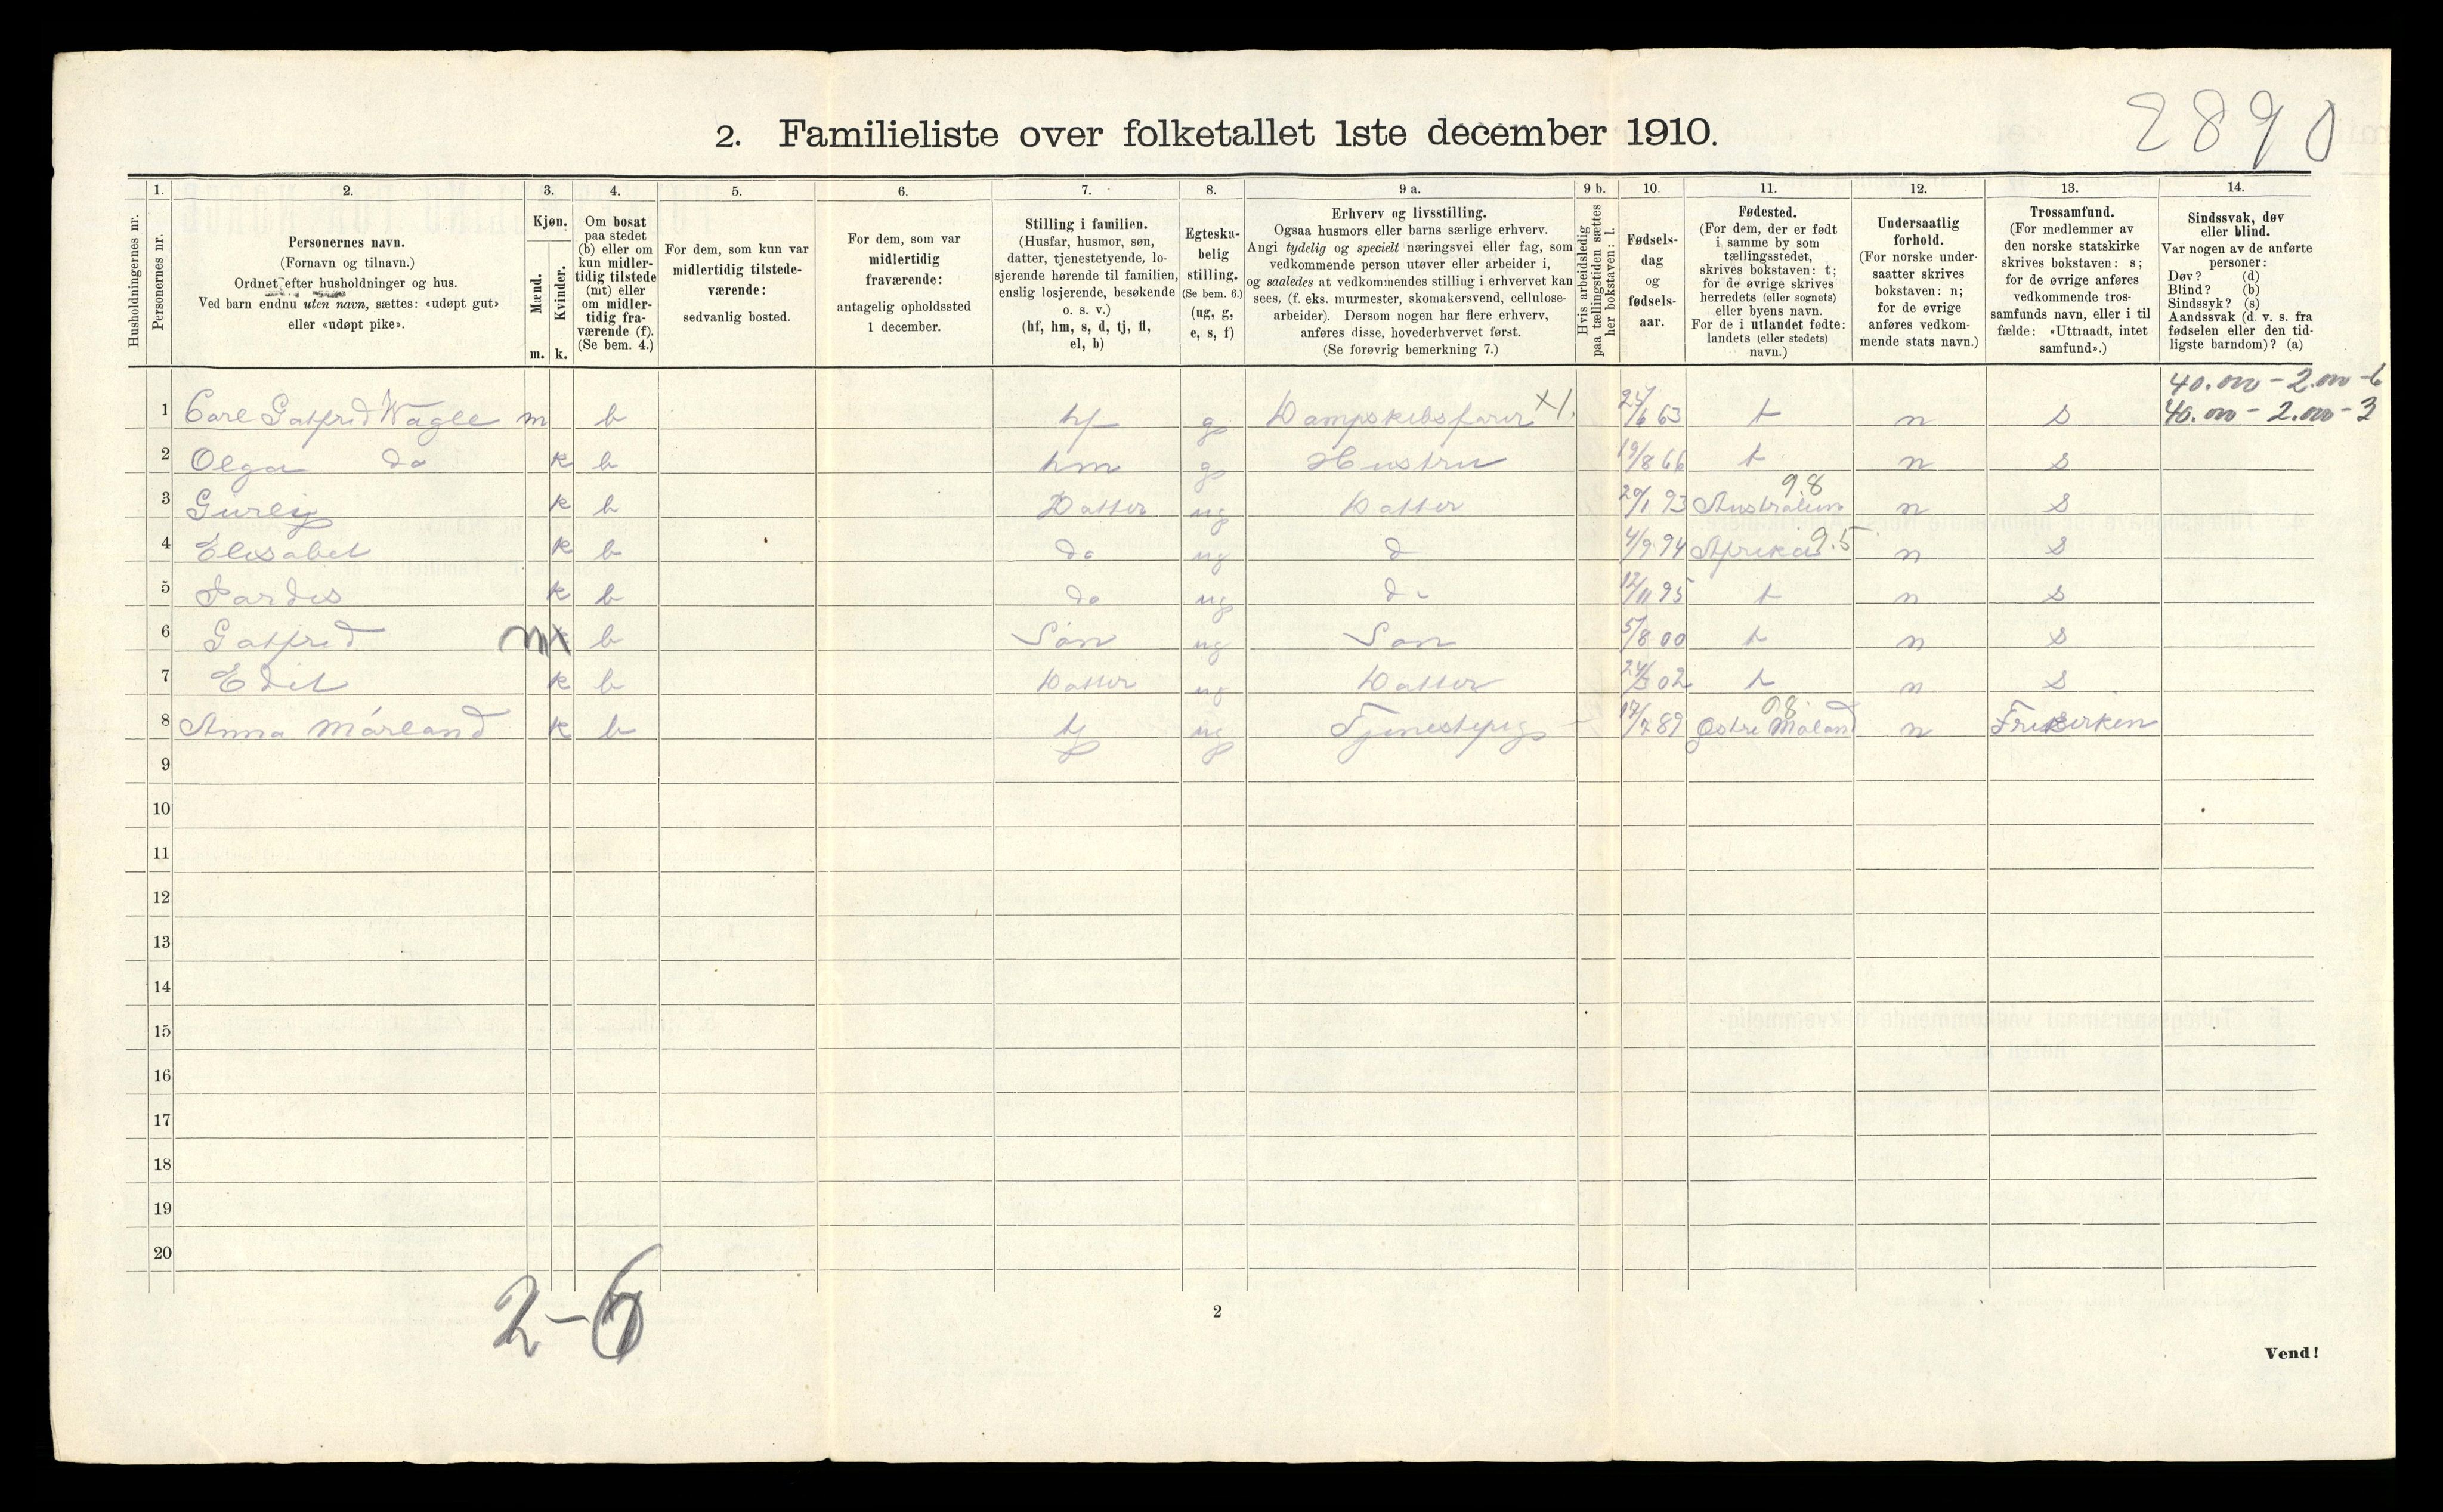 2890
2. Familieliste over folketallet 1ste december 1910.
Husholdningernes nr.
1. Personernes nr.
2. Personernes navn. (Fornavn og tilnavn.) Ordnet efter husholdninger og hus. Ved barn endnu uten navn, sættes: «udøpt gut» eller «udøpt pike».
3. Kjøn. Mænd. m. Kvinder. k.
4. Om bosat paa stedet (b) eller om kun midlertidig tilstede (mt) eller om midlertidig fraværende (f). (Se bem. 4.)
5. For dem, som kun var midlertidig tilstedeværende: sedvanlig bosted.
6. For dem, som var midlertidig fraværende: antagelig opholdssted 1 december.
7. Stilling i familien. (Husfar, husmor, søn, datter, tjenestetyende, losjerende hørende til familien, enslig losjerende, besøkende o. s. v.) (hf, hm, s, d, tj, fl, el, b)
8. Egteskabelig stilling. (Se bem. 6.) (ug, g, e, s, f)
9 a. Erhverv og livsstilling. Ogsaa husmors eller barns særlige erhverv. Angi tydelig og specielt næringsvei eller fag, som vedkommende person utøver eller arbeider i, og saaledes at vedkommendes stilling i erhvervet kan sees, (f. eks. murmester, skomakersvend, cellulosearbeider). Dersom nogen har flere erhverv, anføres disse, hovederhvervet først. (Se forøvrig bemerkning 7.)
9 b. Hvis arbeidsledig paa tællingstiden sættes her bokstaven: l.
10. Fødselsdag og fødselsaar.
11. Fødested. (For dem, der er født i samme by som tællingsstedet, skrives bokstaven: t; for de øvrige skrives herredets (eller sognets) eller byens navn. For de i utlandet fødte: landets (eller stedets) navn.)
12. Undersaatlig forhold. (For norske undersaatter skrives bokstaven: n; for de øvrige anføres vedkommende stats navn.)
13. Trossamfund. (For medlemmer av den norske statskirke skrives bokstaven: s; for de øvrige anføres vedkommende trossamfunds navn, eller i tilfælde: «Uttraadt, intet samfund».)
14. Sindssvak, døv eller blind. Var nogen av de anførte personer: Døv? (d) Blind? (b) Sindssyk? (s) Aandssvak (d. v. s. fra fødselen eller den tidligste barndom)? (a)
40.000 - 2.000 - 6
1 Carl Gotfred Wagle m b hf g Dampskibsfører X1. 25/6 63 t n s 40.000 - 2.000 - 3
2 Olga do k b hm g Hustru 19/8 66 t n s
3 Gurly k b Datter ug Datter 20/1 93 Australien 9.8 n s
4 Elisabet k b do ug d 4/9 94 Afrika 9.5 n s
5 Pardis k b do ug d 12/11 95 t n s
6 Gotfred m b Søn ug Søn 5/8 00 t n s
7 Edit k b Datter ug Datter 24/3 02 t n s
8 Anna Mårland k b tj ug Tjenestepige 17/7 89 Østre Moland 08. n Frikirken
9
10
11
12
13
14
15
16
17
18
19
20
2-6
2
Vend!